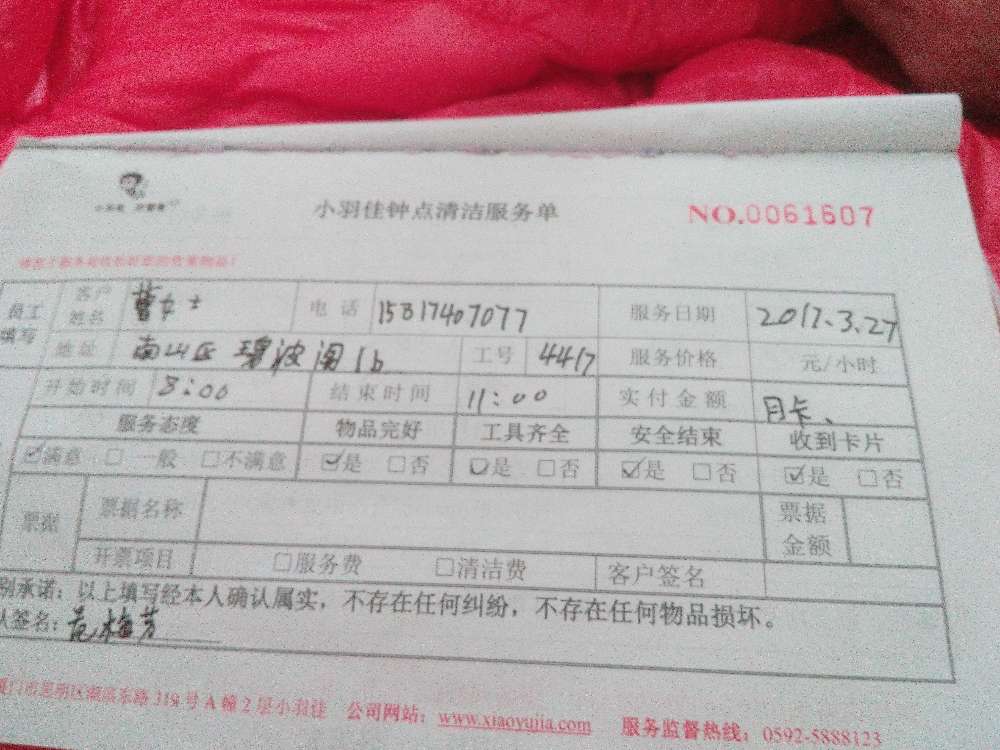 小羽佳钟点清洁服务单
NO.0061607
员工填写 客户姓名 曹女士 电话 15817407077 服务日期 2017.3.27
地址 南山区 碧波阁1b 工号 4417 服务价格 元/小时
开始时间 8:00 结束时间 11:00 实付金额 月卡、
服务态度 物品完好 工具齐全 安全结束 收到卡片
☑满意 □一般 □不满意 ☑是 □否 ☑是 □否 ☑是 □否 ☑是 □否
票据 票据名称 票据金额
开票项目 □服务费 □清洁费 客户签名
别承诺：以上填写经本人确认属实，不存在任何纠纷，不存在任何物品损坏。
人签名：范梅芳
厦门市思明区湖滨东路319号A幢2层小羽佳 公司网站：www.xiaoyujia.com 服务监督热线：0592-5888123